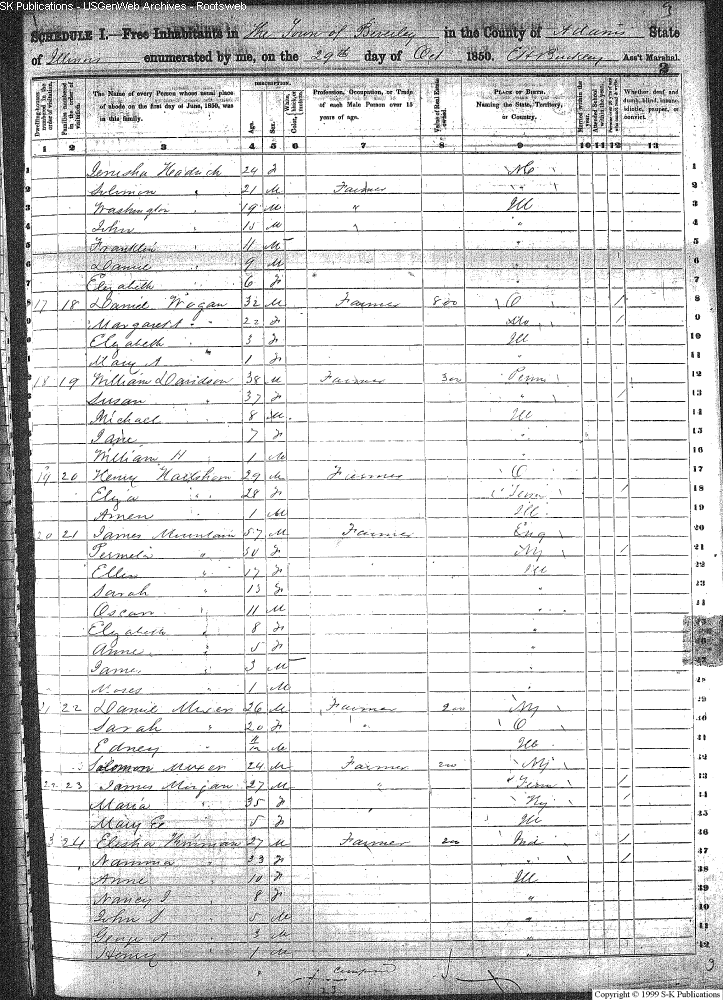 SK Publications - USGenWeb Archives - Rootsweb
3
SCHEDULE I.—Free Inhabitants in the Town of Beverley in the County of Adams State
of Illinois enumerated by me, on the 29th day of Oct 1850. Ass't Marshal.
3
DESCRIPTION.
Dwelling-houses numbered in the order of visitation. Families numbered in the order of visitation. The Name of every Person whose usual place of abode on the first day of June, 1850, was in this family. Age. Sex. Color, White, black, or mulatto. Profession, Occupation, or Trade of each Male Person over 15 years of age. Value of Real Estate owned. PLACE OF BIRTH. Naming the State, Territory, or Country. Married within the year. Attended School within the year. Whether deaf and dumb, blind, insane, idiotic, pauper, or convict.
1 2 3 4 5 6 7 8 9 10 11 12 13
1 24 F 1
2 Solomon " 21 M Farmer " 2
3 Washington " 19 M " Ill 3
4 John " 15 M " " 4
5 Franklin " 11 M " 5
6 Daniel " 9 M " 6
7 Elizabeth " 6 F " 7
8 17 18 Daniel Wogan 32 M Farmer 800 O / 8
9 Margaret " 22 F / 9
10 Elizabeth " 3 F Ill 10
11 Mary A " 1 F " 11
12 18 19 William Davidson 38 M Farmer 300 Penn 12
13 Susan " 37 F " / 13
14 Michael 8 M Ill 14
15 Jane " 7 F " 15
16 William H " 1 M " 16
17 19 20 Henry 29 M Farmer O 17
18 Eliza " 28 F / 18
19 1 M Ill 19
20 20 21 James Mountain 57 M Farmer Eng 20
21 Permelia " 50 F NY / 21
22 Ellen " 17 F Ill
23 Sarah " 13 F "
Oscar " 11 M "
Elizabeth " 8 F "
Anne " 5 F "
James " 3 M "
Moses " 1 M "
21 22 Daniel Mixer 26 M Farmer 200 NY
Sarah " 20 F " O
Edney " M Ill
Solomon Mixer 24 M Farmer 200 NY
22 23 James Morgan 27 M " /
Maria " 35 F Ky /
Mary E " 5 F Ill
23 24 Elisha Kinman 27 M Farmer 200 Ind /
23 F " /
Anne " 10 F Ill
Nancy J " 8 F "
John S " 5 M "
George A " 3 M "
Henry " 1 M "
Copyright © 1999 S-K Publications